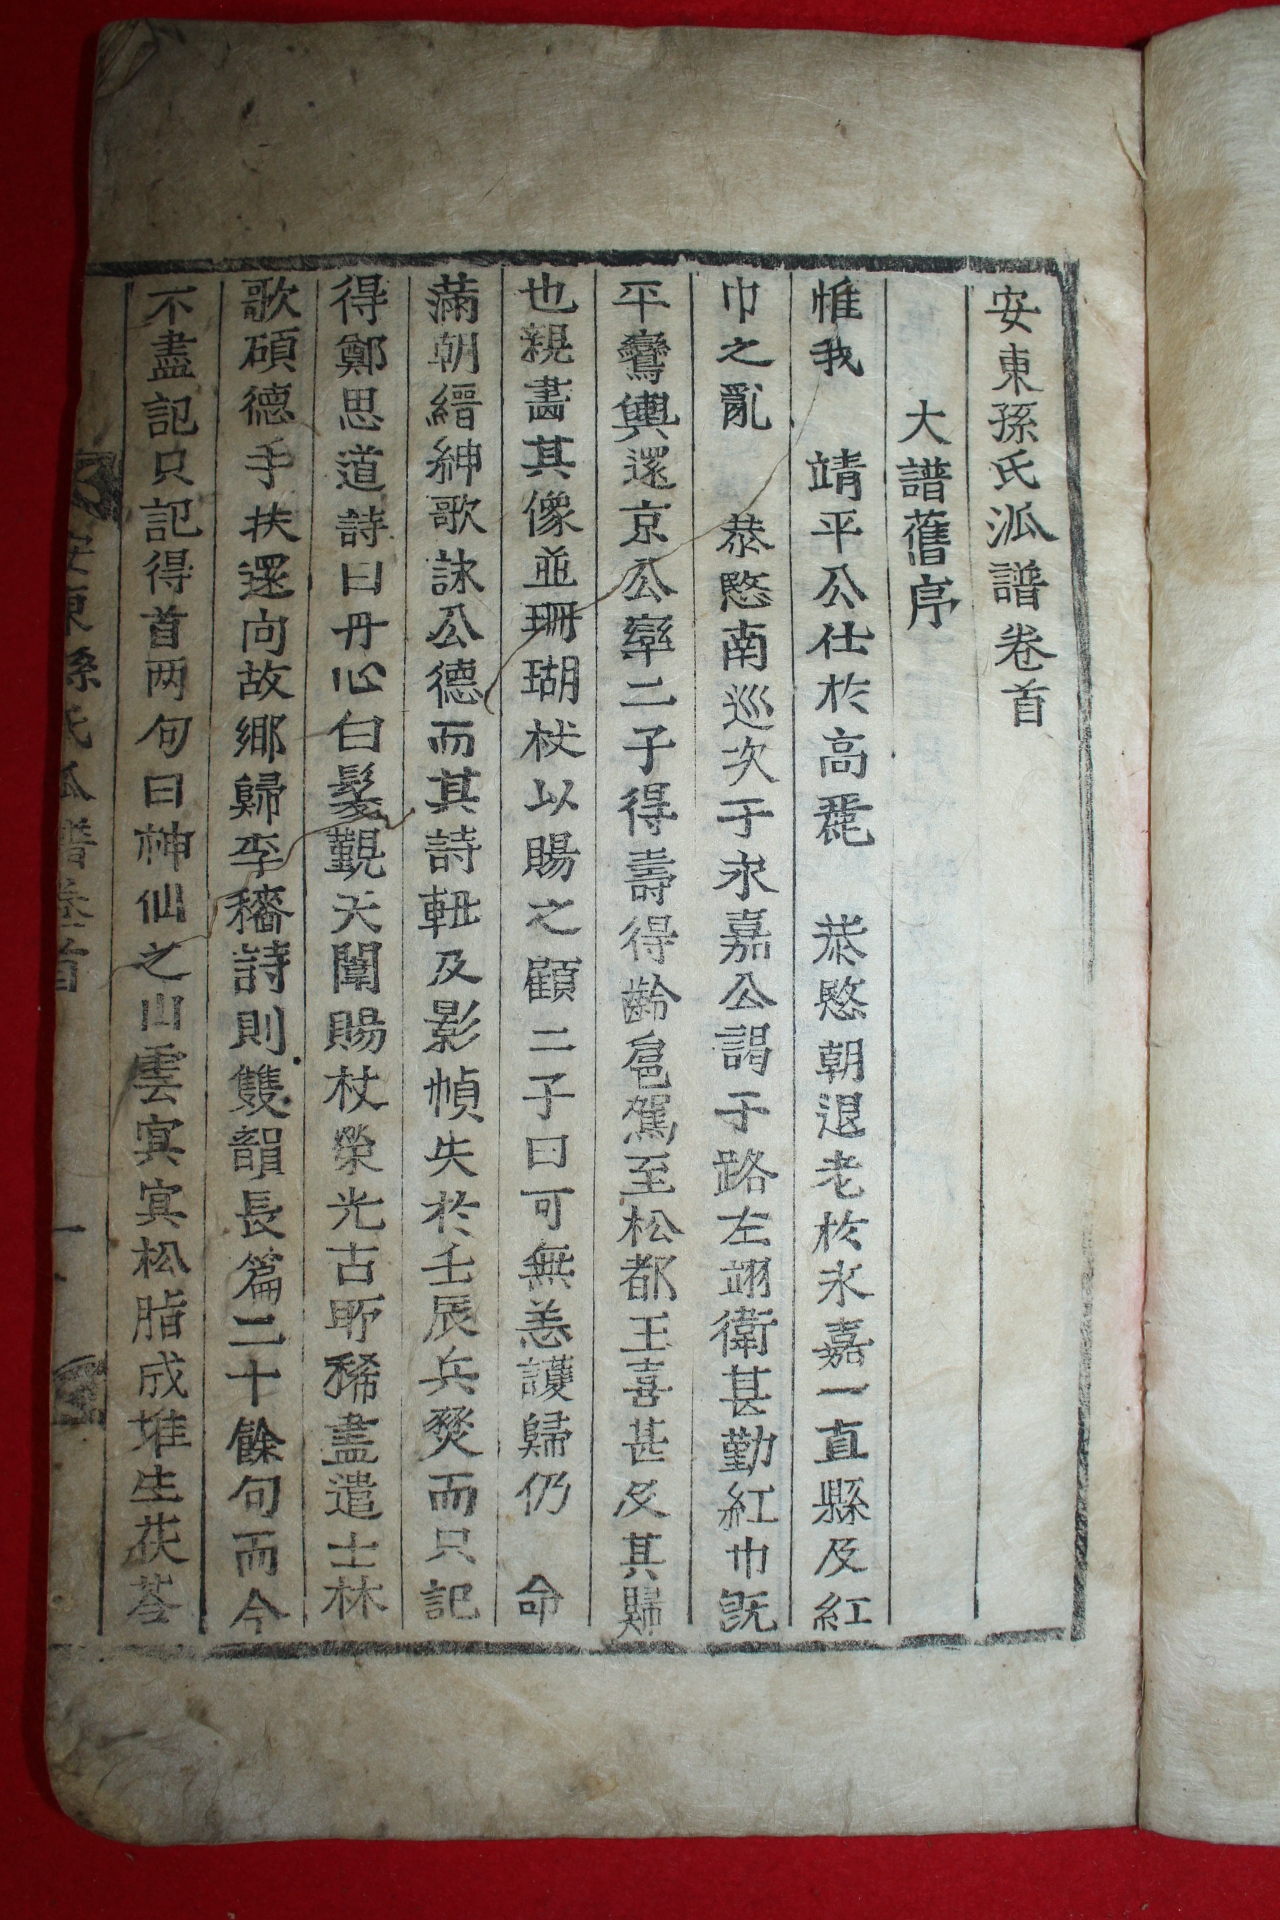 安東孫氏派譜卷首
大譜舊序
惟我 靖平公仕於高麗 恭愍朝退老於永嘉一直縣及紅
巾之亂 恭愍南巡次于永嘉公謁于路左翊衛甚勤紅巾旣
平鸞輿還京公率二子得壽得齡扈駕至松都王喜甚及其歸
也親畵其像並珊瑚杖以賜之顧二子曰可無恙護歸仍 命
滿朝縉紳歌詠公德而其詩軸及影幀失於壬辰兵燹而只記
得鄭思道詩曰丹心白髮覲天闈賜杖榮光古所稀盡遣士林
歌碩德手扶還向故鄉歸李穡詩則雙韻長篇二十餘句而今
不盡記只記得首兩句曰神仙之山雲冥冥松脂成堆生茯苓
安東孫氏派譜卷首 一